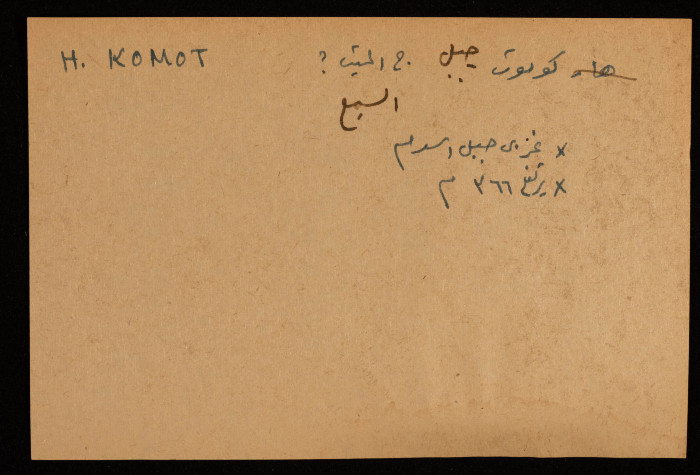 H. KOMOT هار كوموت جبل ج الميت ؟
السبع
x غربي جبل اسدوم
x يرتفع ٣٦٦ م